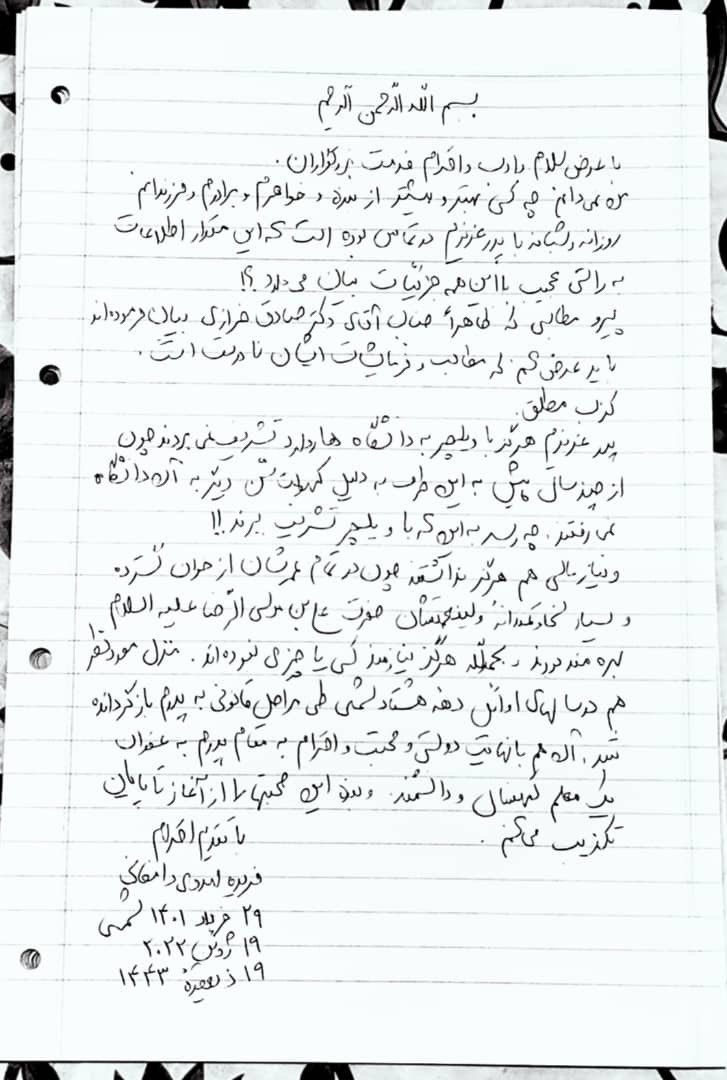 بسم الله الرّحمن الرّحیم
با عرض سلام و ادب و احترام خدمت بزرگواران.
من نمی‌دانم چه کسی بهتر و بیشتر از بنده و خواهرم و برادرم و فرزندانم
روزانه و شبانه با پدر عزیزم در تماس بوده است که این مقدار اطلاعات
به راستی عجیب با این همه جزئیات بیان می‌دارد؟!
پیرو مطالبی که ظاهراً جناب آقای دکتر صادق خرازی بیان فرموده‌اند
باید عرض کنم که مطالب و فرمایشات ایشان نادرست است.
کذب مطلق.
پدر عزیزم هرگز با ویلچر به دانشگاه هاروارد تشریف نمی‌بردند چون
از چند سال پیش به این طرف به دلیل کهولت سنّ دیگر به آن دانشگاه
نمی‌رفتند، چه رسد به این که با ویلچر تشریف ببرند!!
و نیاز مالی هم هرگز نداشتند چون در تمام عمرشان از خوان گسترده
و بسیار سخاوتمندانهٔ ولینعمتشان حضرت علی بن موسی الرّضا علیه السلام
بهره مند بودند و بحمدلله هرگز نیازمند کسی یا چیزی نبوده‌اند. منزل مورد نظر
هم در سالهای اوائل دهه هشتاد شمسی طی مراحل قانونی به پدرم بازگردانده
شد، آن هم با نهایت دوستی و محبت و احترام به مقام پدرم به عنوان
یک معلم کهنسال و دانشمند. و بنده این صحبتها را از آغاز تا پایان
تکذیب می‌کنم.
با تقدیم احترام
فریده مهدوی دامغانی
۲۹ خرداد ۱۴۰۱ شمسی
۱۹ ژوئن ۲۰۲۲
۱۹ ذیقعدهٔ ۱۴۴۳